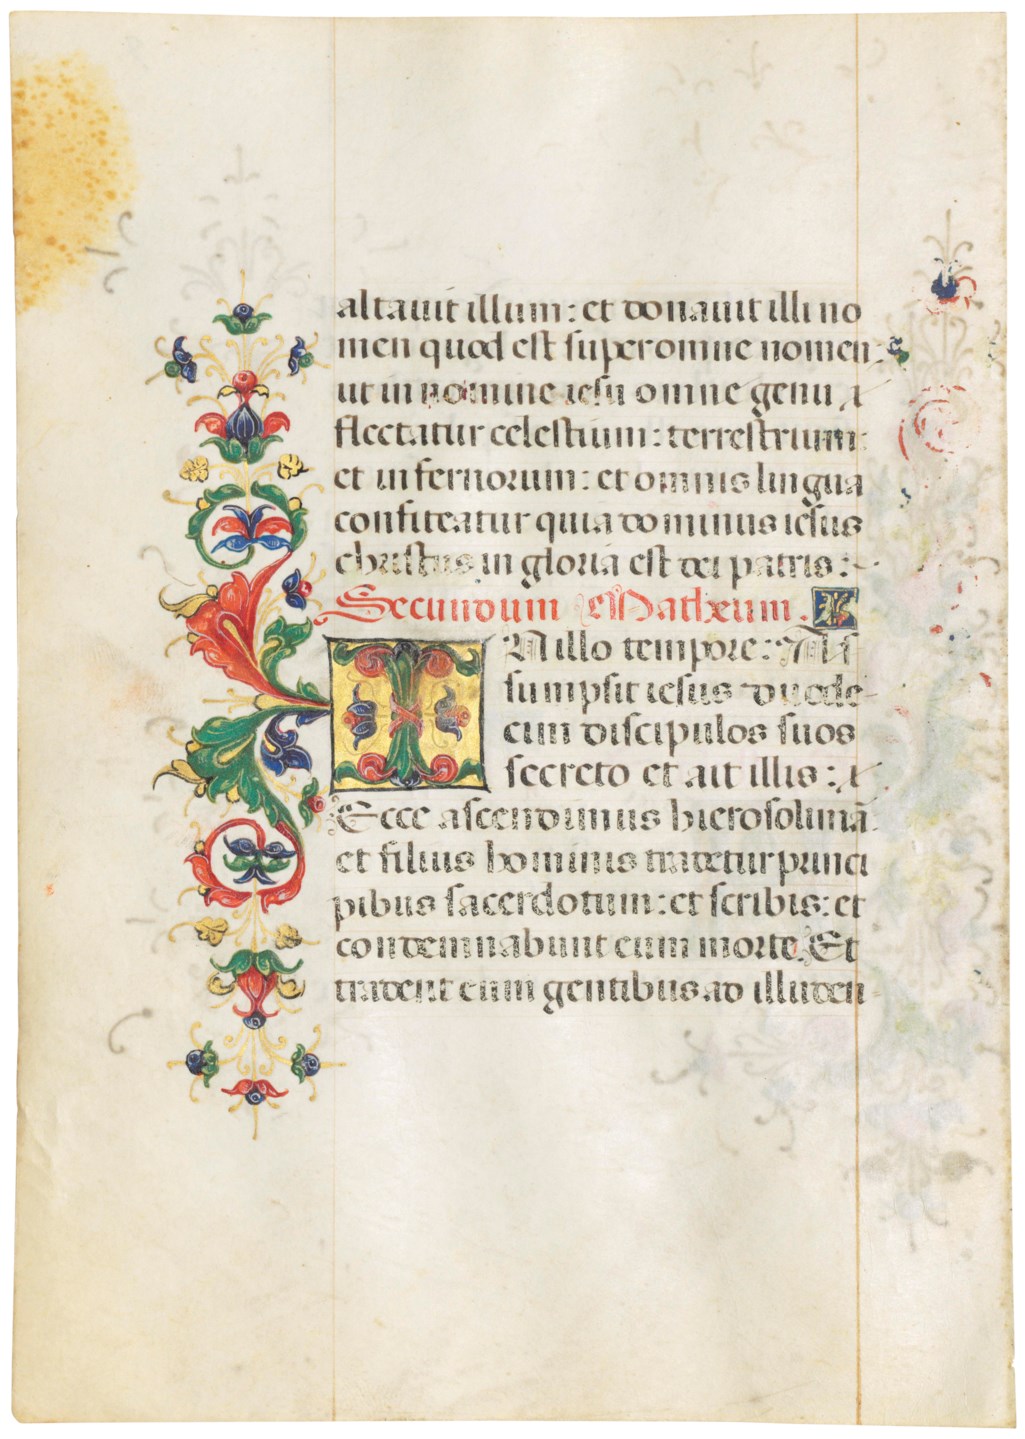 altauit illum: et donauit illi no
men quod est super omne nomen:
ut in nomine iesu omne genu
flectatur celestium: terrestrium:
et infernorum: et omnis lingua
confiteatur quia dominus iesus
christus in gloria est dei patris:
Secundum Matheum.
IN illo tempore: As
sumpsit iesus duode
cim discipulos suos
secreto et ait illis:
Ecce ascendimus hierosolimā
et filius hominis tradetur princi
pibus sacerdotum: et scribis: et
condemnabunt eum morte. Et
tradent eum gentibus ad illuden